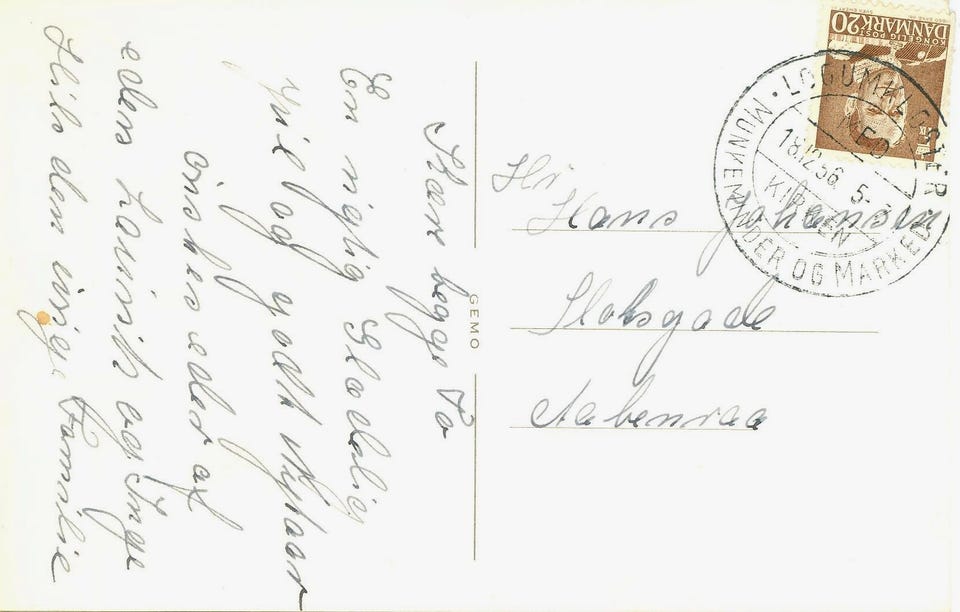 Kære begge To
En rigtig Glædelig
Jul og godt Nytaar
ønskes eder af
eders Laurids og Inge
Hils den øvrige Familie
GEMO
Hr
Hans Johansen
Slotsgade
Aabenraa
KONGELIG POST
DANMARK 20
LØGUMKLOSTER
MUNKENE DER OG MARKED
MED
18.12.56. 5-
KIRKEN